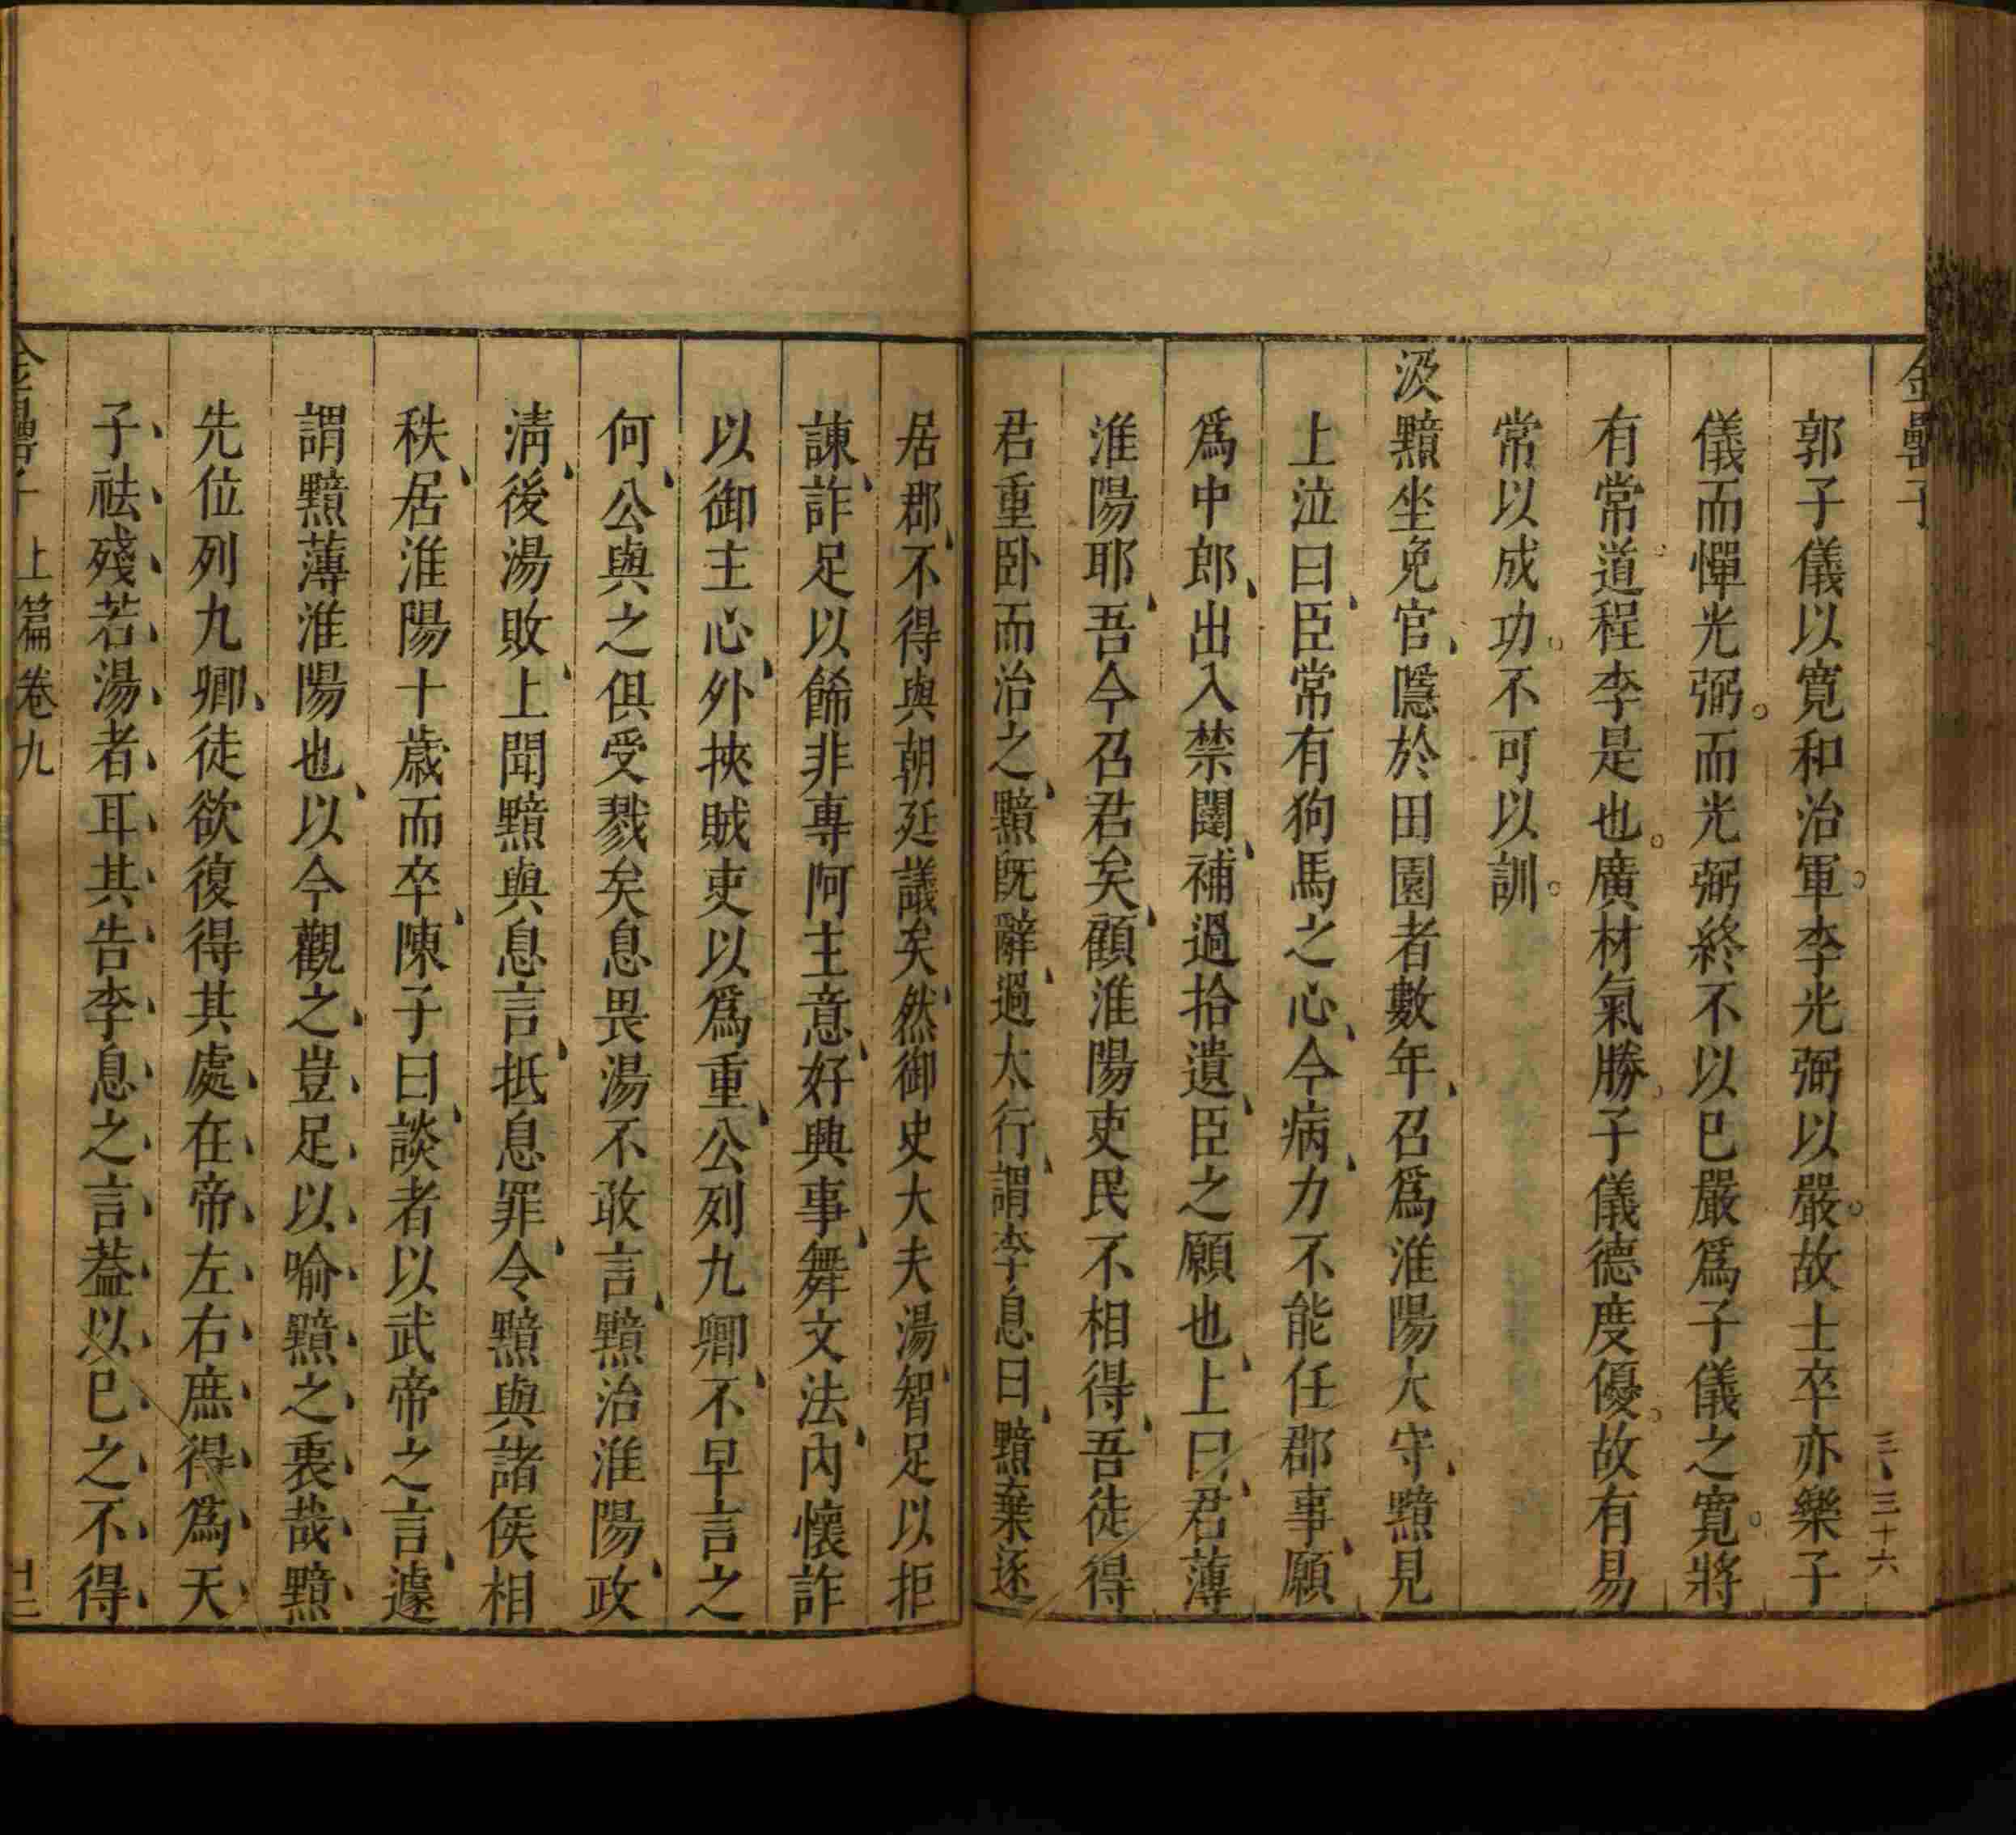 金罍子
三、三十六
郭子儀以寬和治軍。李光弼以嚴。故士卒亦樂子
儀而憚光弼。而光弼終不以已嚴爲子儀之寬。將
有常道程李是也。廣材氣勝。子儀德度優。故有易
常以成功。不可以訓。
汲黯坐免官、隱於田園者數年、召爲淮陽太守、黯見
上泣曰、臣常有狗馬之心、今病、力不能任郡事、願
爲中郎、出入禁闥、補過拾遺、臣之願也、上曰、君薄
淮陽耶、吾今召君矣、顧淮陽吏民不相得、吾徒得
君重卧而治之、黯旣辭、過太行、謂李息曰、黯棄逐
居郡、不得與朝廷議矣、然御史大夫湯、智足以拒
諫、詐足以餙非專阿主意、好興事、舞文法、內懷詐
以御主心、外挾賊吏以爲重、公列九卿、不早言之
何、公與之俱受戮矣息畏湯不敢言、黯治淮陽、政
淸、後湯敗、上聞黯與息言、抵息罪、令黯與諸侯相
秩、居淮陽十歲而卒、陳子曰、談者以武帝之言、遽
謂黯薄淮陽也、以今觀之、豈、足、以、喻、黯、之、衷、哉、黯、
先位列九卿、徒欲復得其處、在、帝、左、右、庶、得、爲、天、
子、祛、殘、若、湯、者、耳、其、告、李、息、之、言、葢、以、已、之、不、得、
金罍子 上篇卷九 廿三